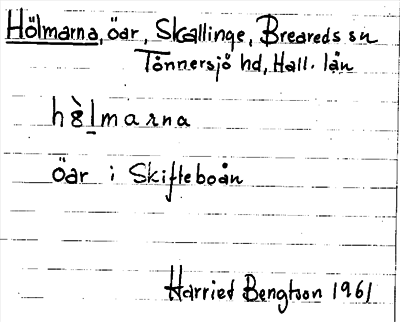 Hölmarna, öar, Skallinge, Breareds sn
Tönnersjö hd, Hall. län
öar i Skifteboån
Harried Bengtson 1961